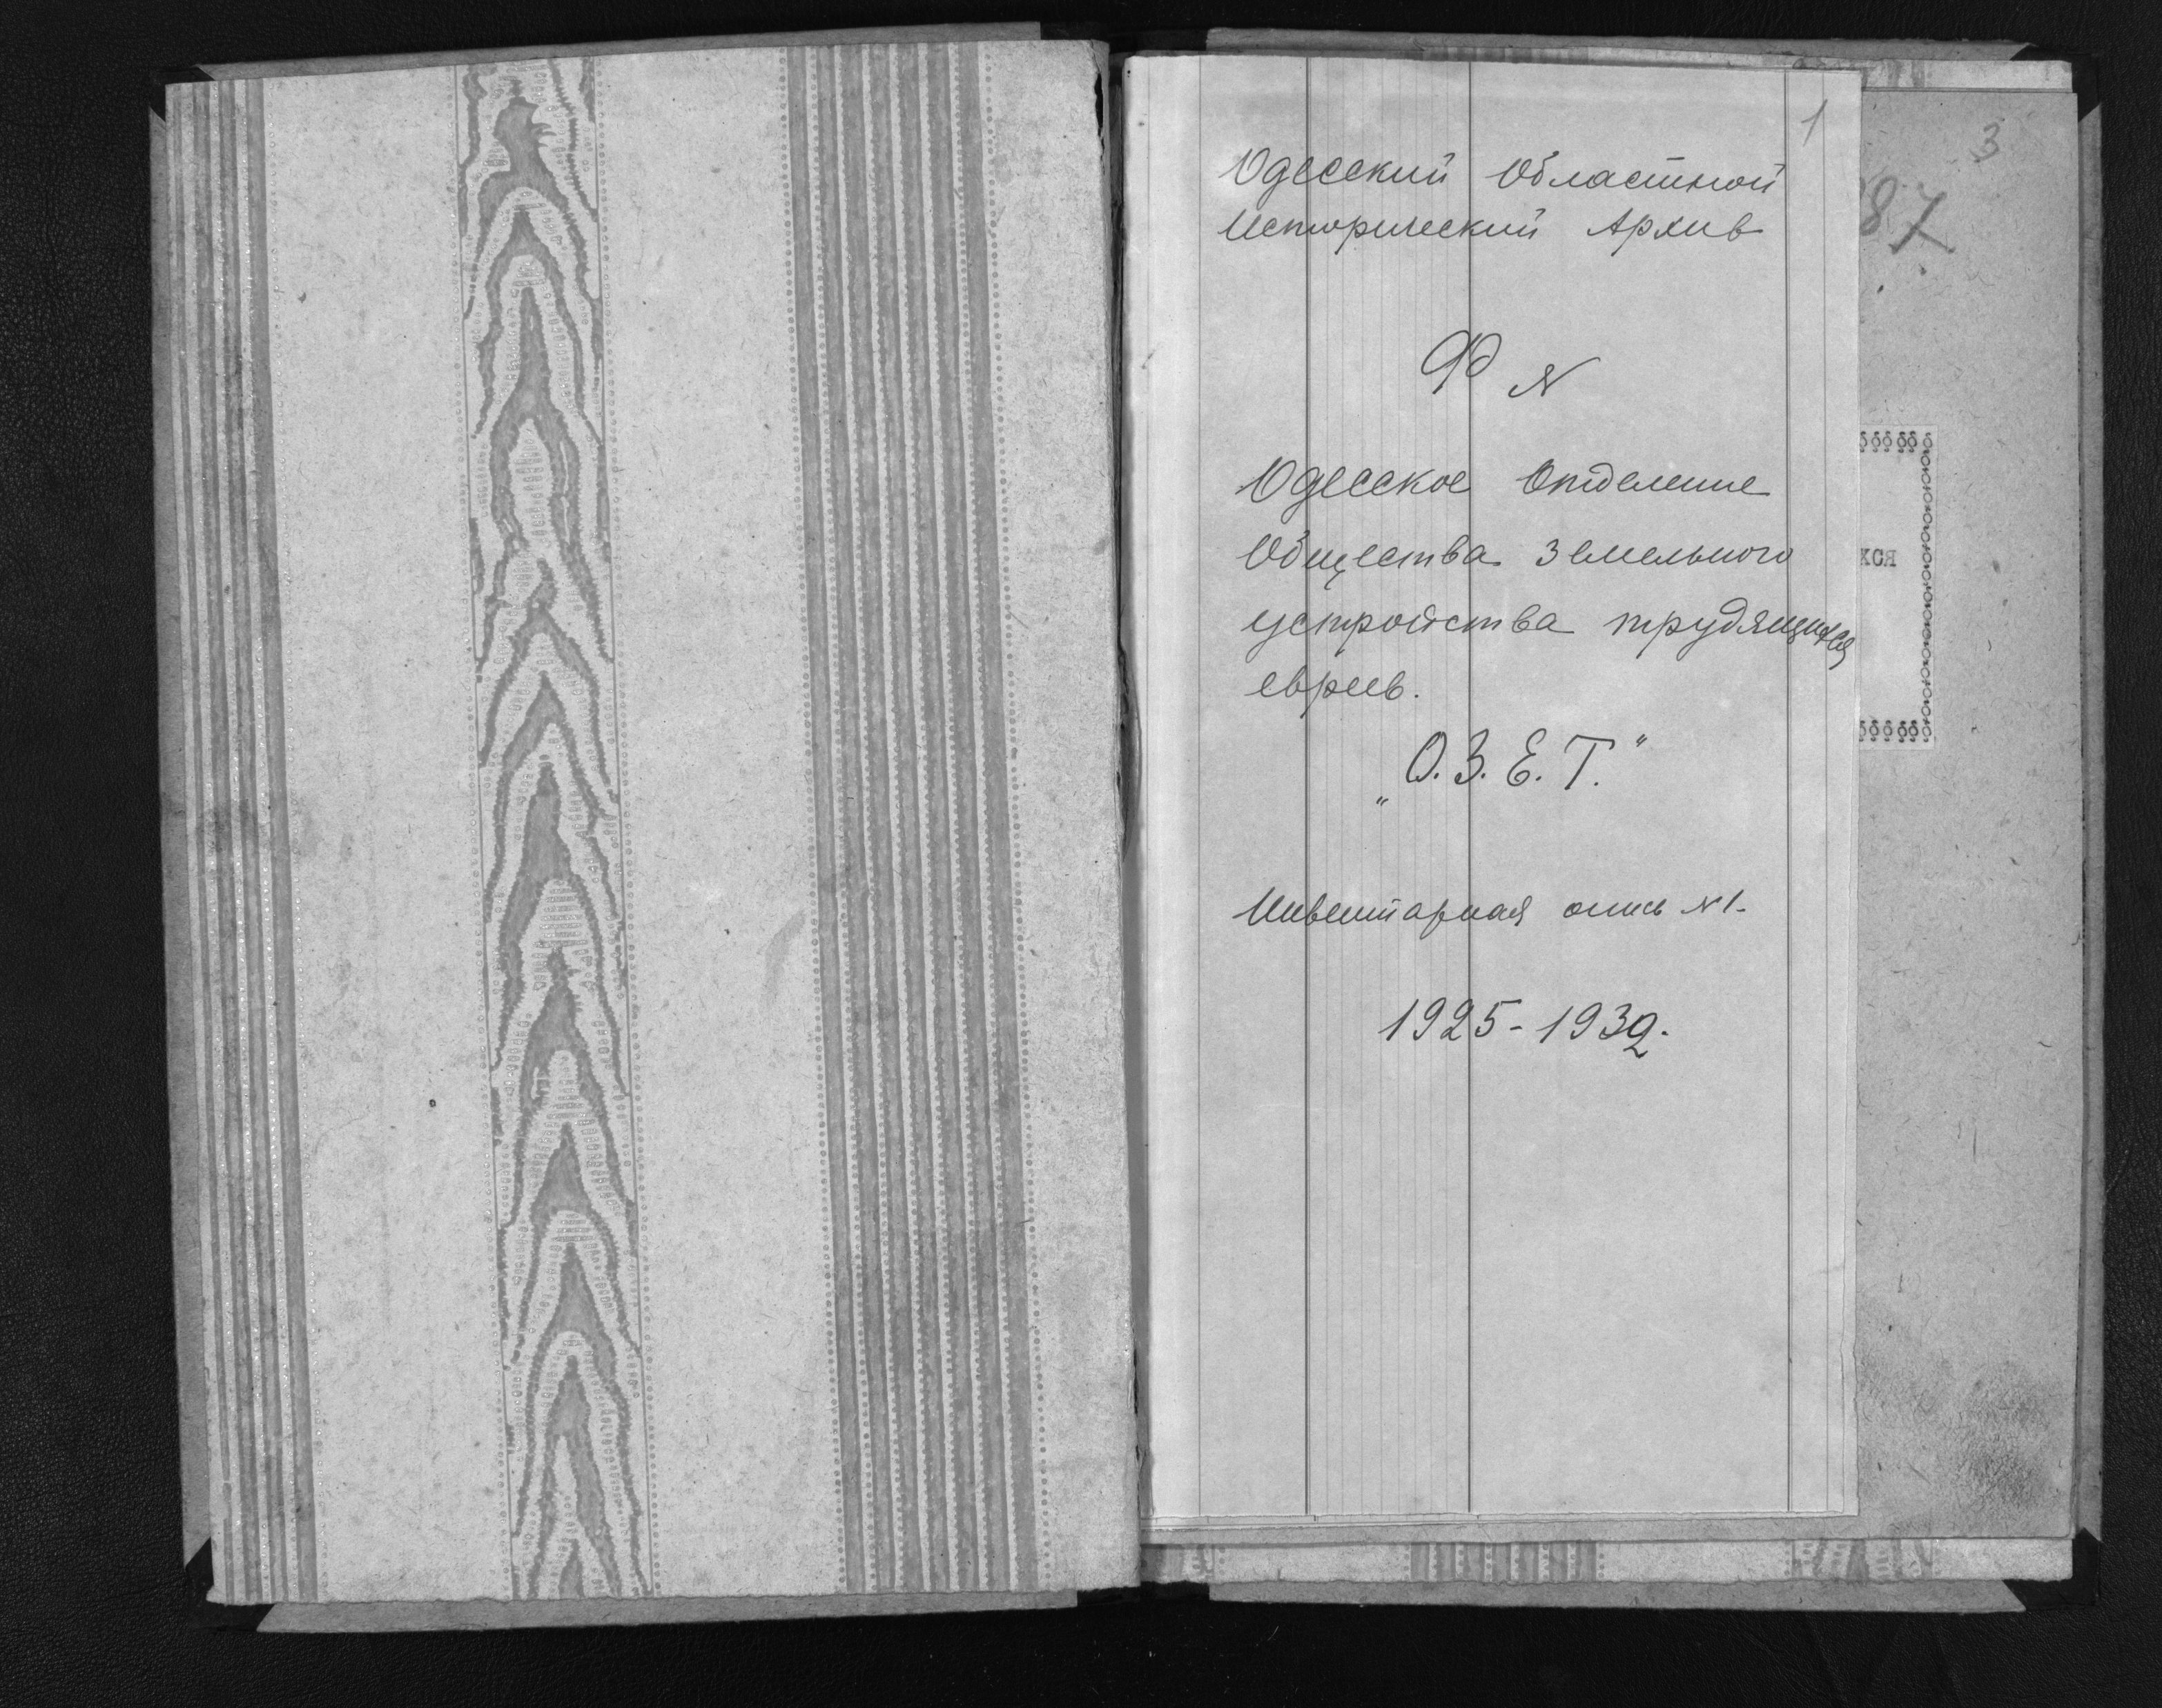 1
3
87
Одесский Областной
Исторический Архив
Ф N
Одесское Отделение
Общества Земельного
устройства трудящихся
евреев.
„О.З.Е.Т."
Инвентарная опись N 1.
1925-1932.
хся